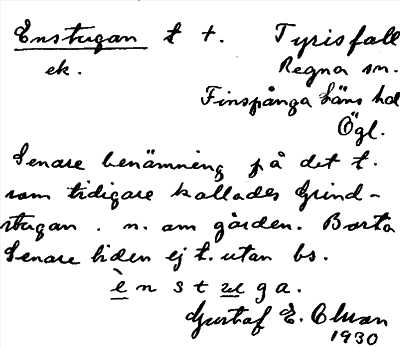 Enstugan t t. Tyrisfall
ek. Regna sn.
Finspånga läns hd
Ögl.
Senare benämning på det t.
som tidigare kallades Grind-
stugan. n. om gården. Borta
Senare tiden ej t. utan bs.
è n s t u g a.
Gustaf E. Olsson
1930